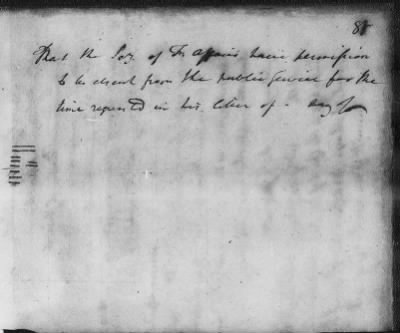 81
That the Secy of Fn Affairs have permission
to be absent from the public service for the
time requested in his letter of - Augt